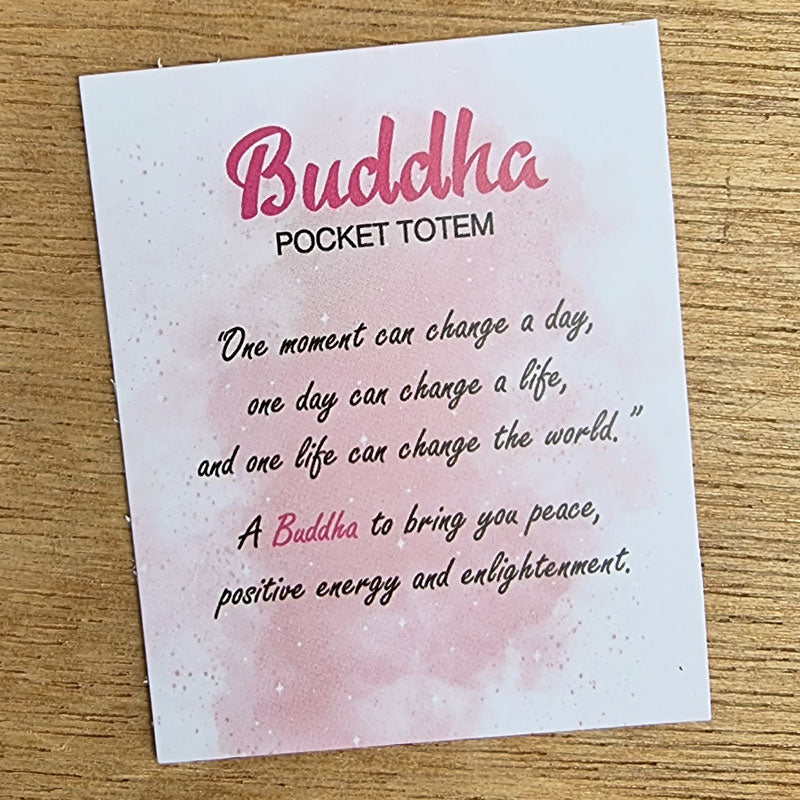 Buddha
POCKET TOTEM
"One moment can change a day,
one day can change a life,
and one life can change the world."
A Buddha to bring you peace,
positive energy and enlightenment.